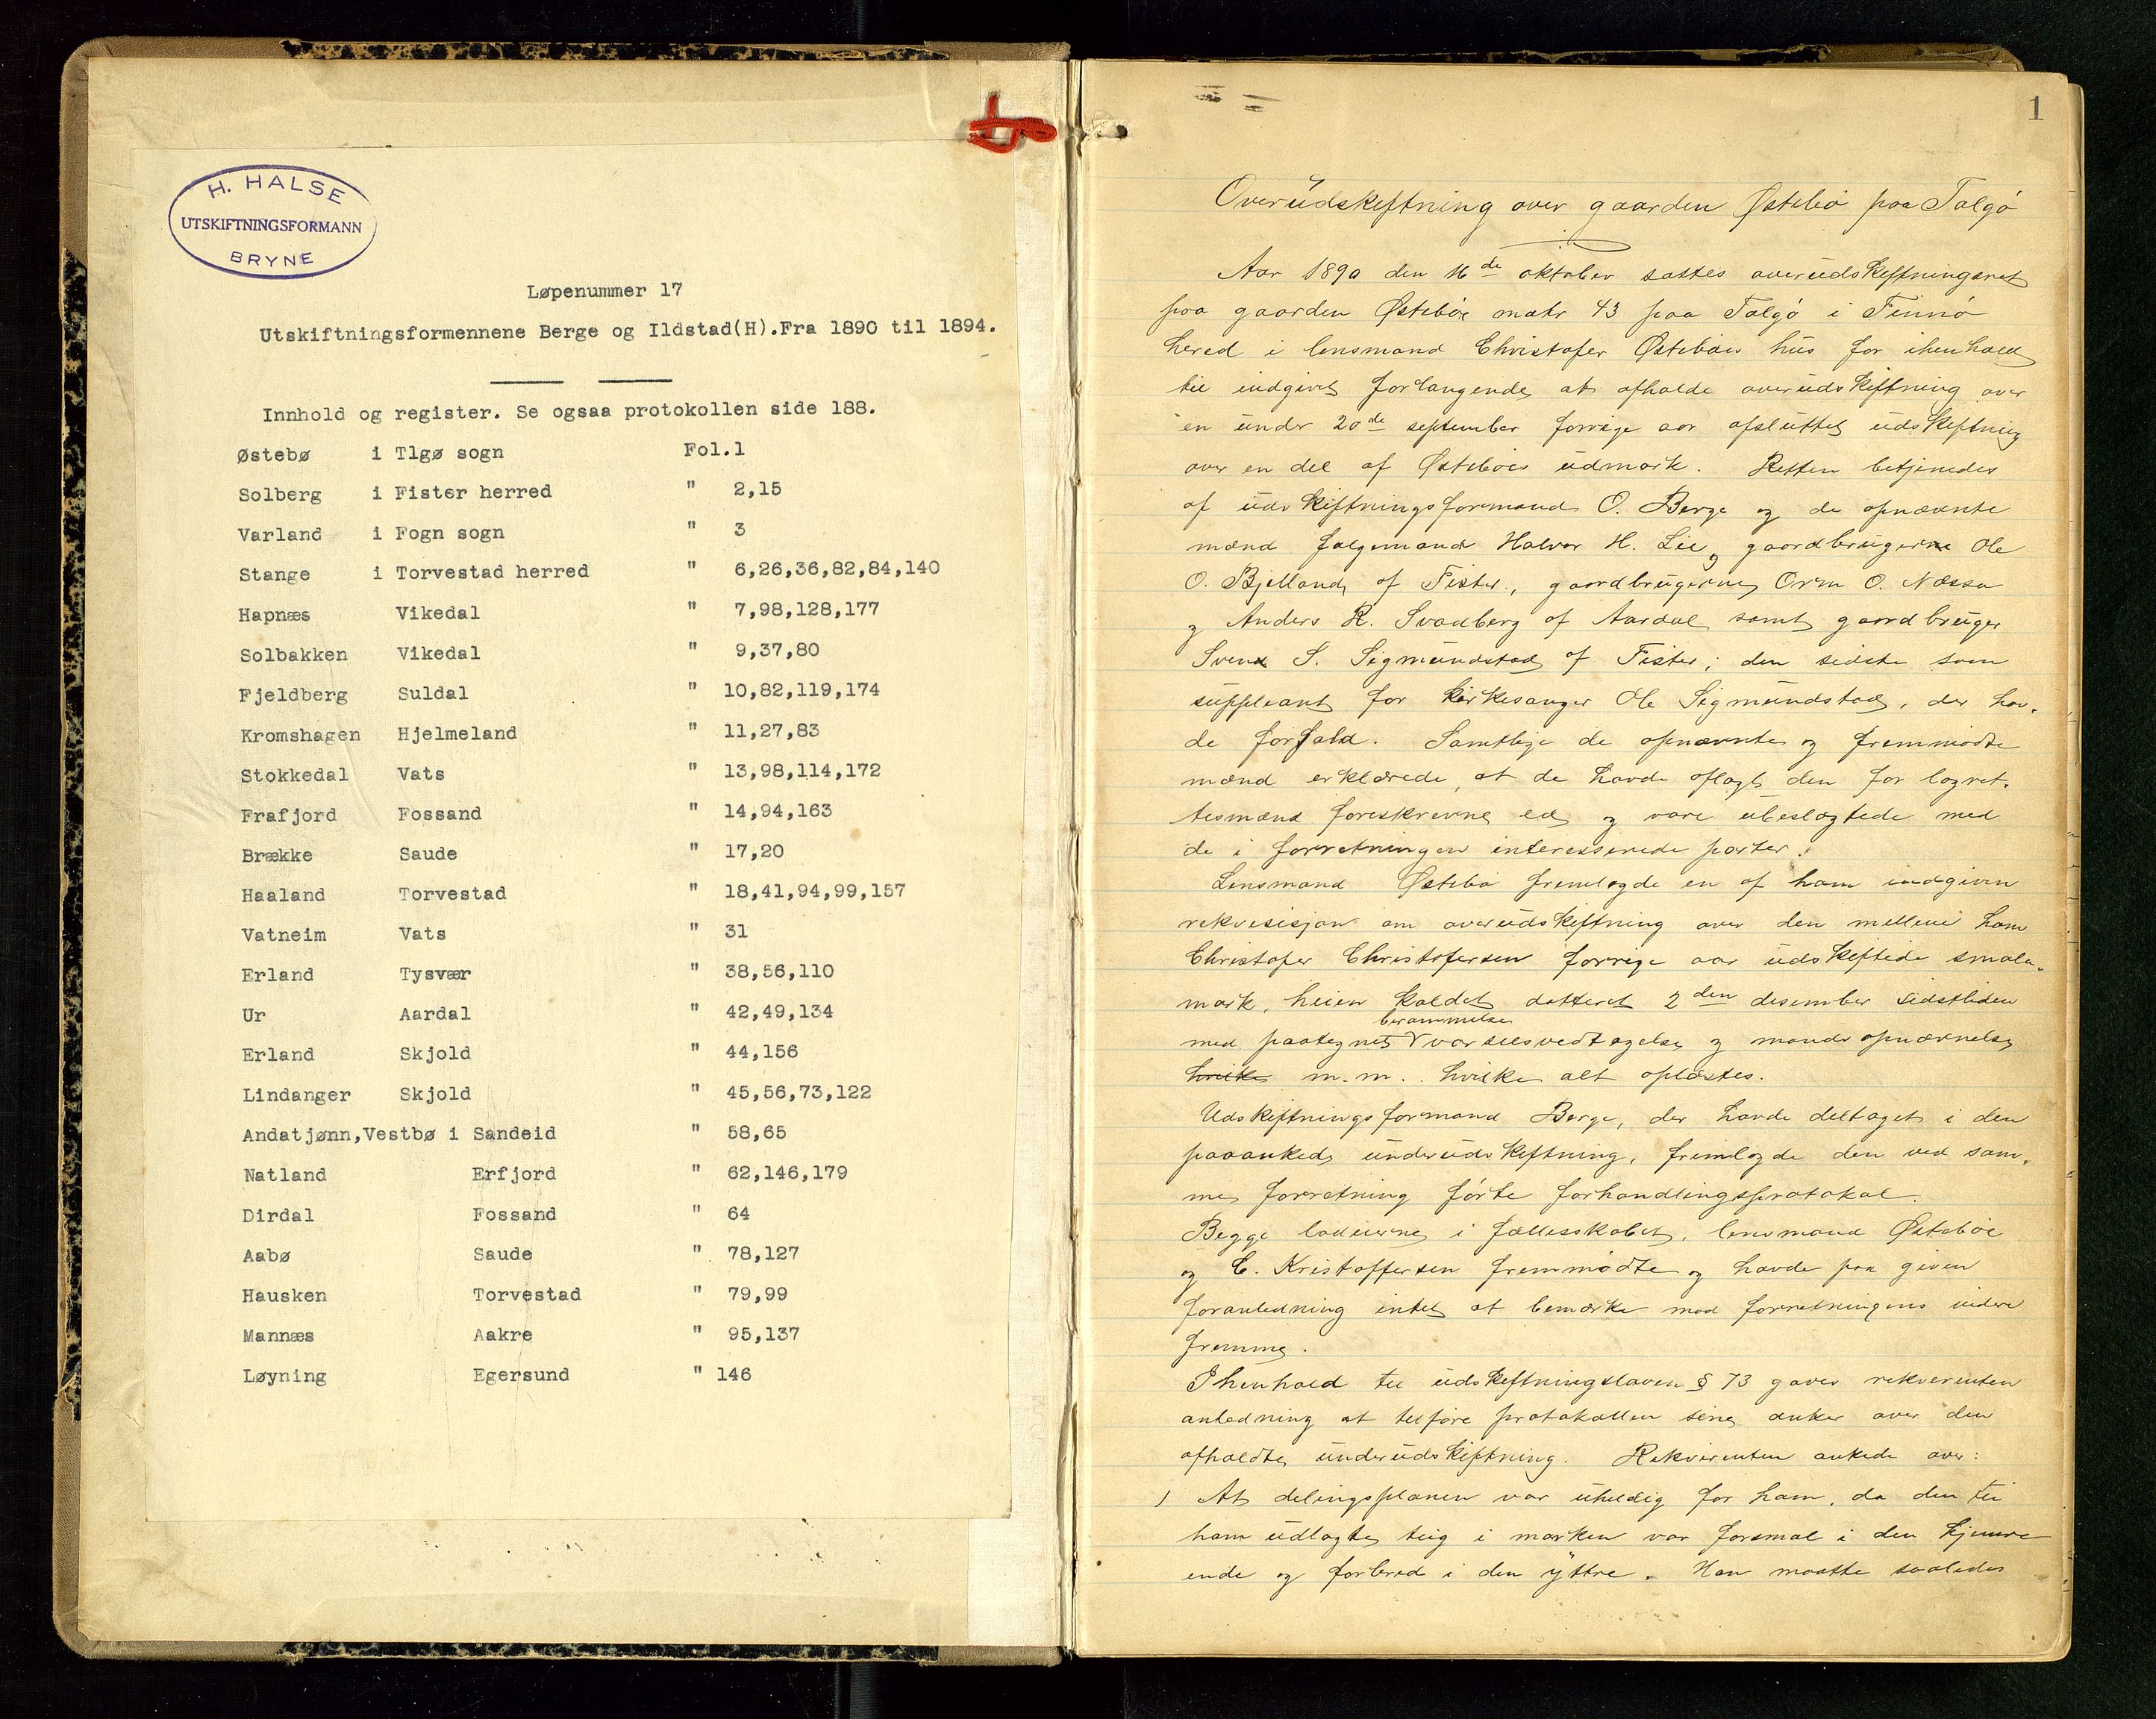 H. HALSE
UTSKIFTNINGSFORMANN
BRYNE
Løpenummer 17
Utskiftningsformennene Berge og Ildstad(H).Fra 1890 til 1894.
Innhold og register. Se ogsaa protokollen side 188.
Østebø i Tlgø sogn Fol.1
Solberg i Fister herred " 2,15
Varland i Fogn sogn " 3
Stange i Torvestad herred " 6,26,36,82,84,140
Hapnæs Vikedal " 7,98,128,177
Solbakken Vikedal " 9,37,80
Fjeldberg Suldal " 10,82,119,174
Kromshagen Hjelmeland " 11,27,83
Stokkedal Vats " 13,98,114,172
Frafjord Fossand " 14,94,163
Brække Saude " 17,20
Haaland Torvestad " 18,41,94,99,157
Vatneim Vats " 31
Erland Tysvær " 38,56,110
Ur Aardal " 42,49,134
Erland Skjold " 44,156
Lindanger Skjold " 45,56,73,122
Andatjønn,Vestbø i Sandeid " 58,65
Natland Erfjord " 62,146,179
Dirdal Fossand " 64
Aabø Saude " 78,127
Hausken Torvestad " 79,99
Mannæs Aakre " 95,137
Løyning Egersund " 146
1
Overudskiftning over gaarden Østebø paa Talgø
Aar 1890 den 16de oktober sattes overudskiftningsret
paa gaarden Østebøe matr 43 paa Talgø i Finnø
hered i lensmand Christofer Østebøes hus for ihenhold
til indgivet forlangende at afholde overudskiftning over
en under 20de september forrige aar afsluttet udskiftning
over en del af Østebøes udmark. Retten betjenedes
af udskiftningsformand O. Berge og de opnævnte
mænd følgemand Halvor H. Lie, gaardbrugerne Ole
O. Bjelland af Fister, gaardbrugerne Orm O. Næssa
og Anders R. Svadberg af Aardal samt gaardbruger
Svend S. Sigmundstad af Fister; den sidste som
suppleant for kirkesanger Ole Sigmundstad, der hav-
de forfald. Samtlige de opnævnte og fremmødte
mænd erklærede, at de havde aflagt den for lagret-
tesmænd foreskrevne ed og vare ubeslægtede med
de i forretningen interesserede parter.
Lensmand Østebø fremlagde en af ham indgiven
rekvisisjon om overudskiftning over den mellem ham
Christofer Christofersen forrige aar udskiftede smale-
mark, heien kaldet datteret 2den desember sidstleden
med paategnet berammelse varselsvedtagelse og mandsopnævnelse
hvilke m.m. hvilke alt oplæstes.
Udskiftningsformand Berge, der havde deltaget i den
paaankede underudskiftning, fremlagde den ved sam-
me forretning førte forhandlingsprotokol.
Begge lodeierne i fællesskabet, lensmand Østebøe
og C. Kristoffersen fremmødte og havde paa given
foranledning intet at bemærke mod forretningens videre
fremme.
Ihenhold til udskiftningsloven § 73 gaves rekvirenten
anledning at tilføre protokollen sine anker over den
afholdte underudskiftning. Rekvirenten ankede over:
1 At delingsplanen var uheldig for ham, da den til
ham udlagte teig i marken var forsmal i den hjemre
ende og forbred i den yttre. Han maatte saaledes